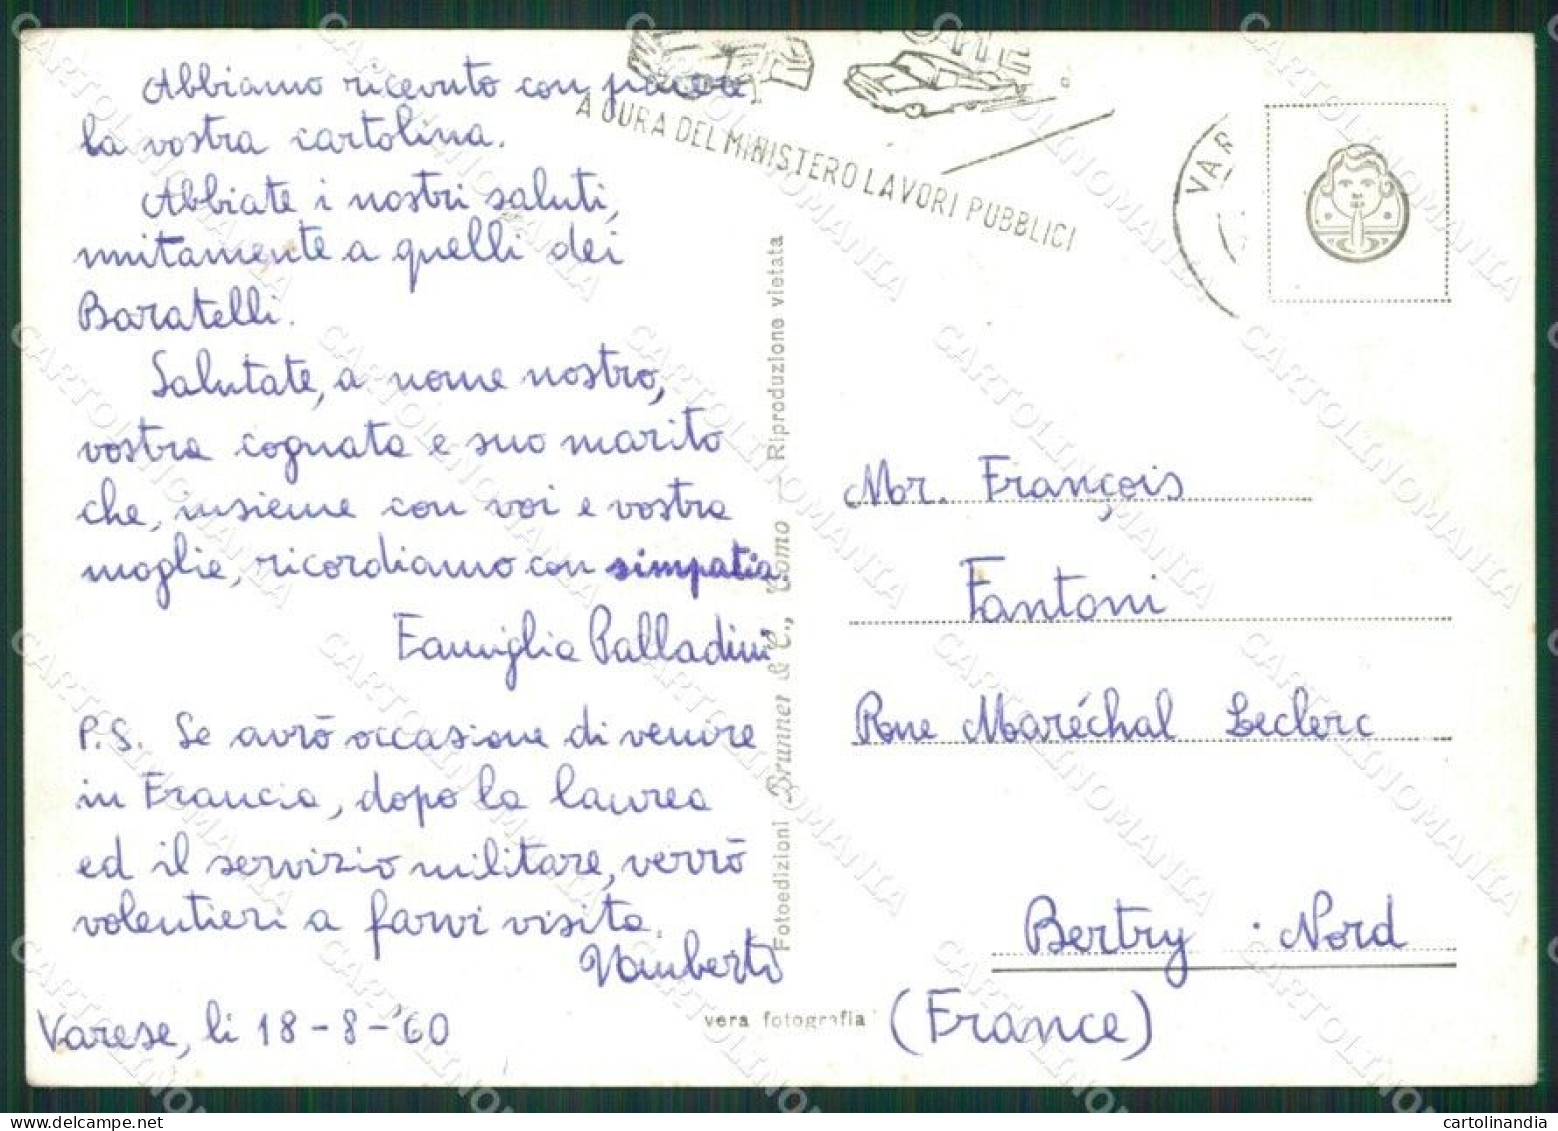 Abbiamo ricevuto con piacere
la vostra cartolina.
Abbiate i nostri saluti,
unitamente a quelli dei
Baratelli.
Salutate, a nome nostro,
vostra cognata e suo marito
che, insieme con voi e vostra
moglie, ricordiamo con simpatia.
Famiglia Palladini
P.S. Se avrò occasione di venire
in Francia, dopo la laurea
ed il servizio militare, verrò
volentieri a farvi visita.
Umberto
Varese, li 18-8-'60
A CURA DEL MINISTERO LAVORI PUBBLICI
VAR
Fotoedizioni Brunner & C., Como - Riproduzione vietata
vera fotografia
Mr. François
Fantoni
Rue Maréchal Leclerc
Bertry - Nord
(France)
CARTOLINOMANIA
cartolinandia